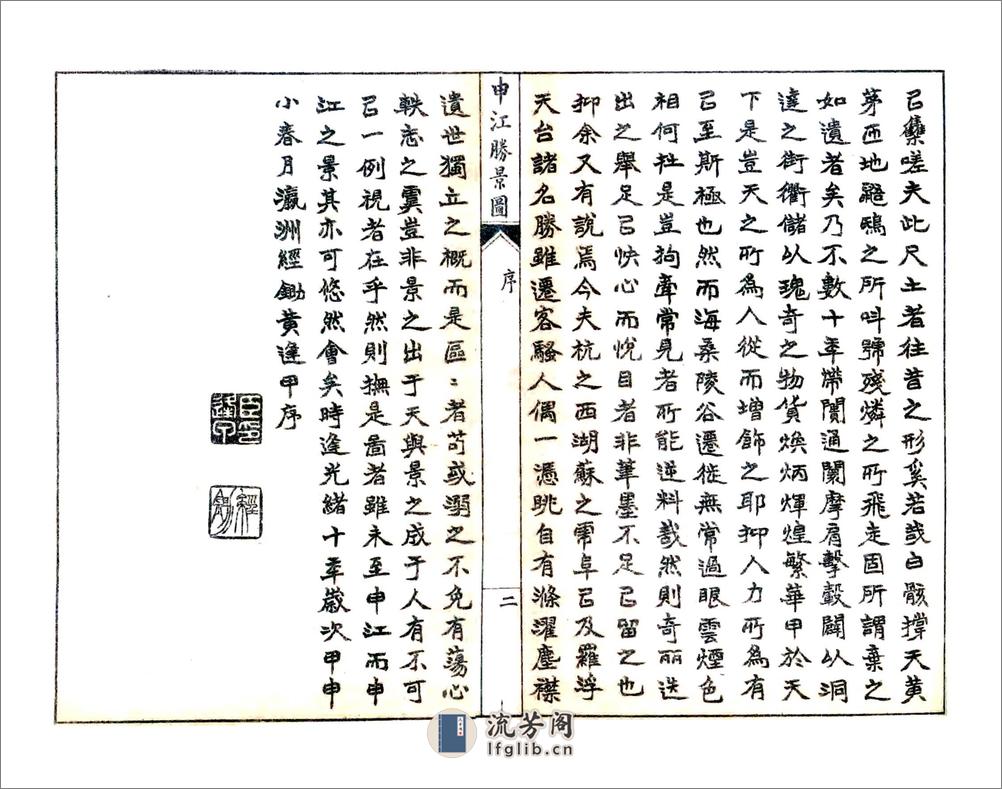 已藥嗟夫此尺土者往昔之形奚若哉白骸撐天黃
茅匝地鼯鴉之所呌號殘燐之所飛走固所謂棄之
如遺者矣乃不數十年帶闤通闠摩肩擊轂闢以洞
達之街衢儲以瑰奇之物貨煥炳煇煌繁華甲於天
下是豈天之所為人從而增飾之耶抑人力所為有
已至斯極也然而海桑陵谷遷徙無常過眼雲煙色
相何拄是豈拘牽常見者所能逆料哉然則奇丽迭
出之舉足已快心而悅目者非筆墨不足已留之也
抑余又有說焉今夫杭之西湖蘇之虎阜已及羅浮
天台諸名勝雖遷客騷人偶一憑眺自有滌濯塵襟
申江勝景圖
序
二
遺世獨立之概而是區〻者苟或溺之不免有蕩心
軼志之虞豈非景之出于天與景之成于人有不可
已一例視者在乎然則撫是啚者雖未至申江而申
江之景其亦可悠然會矣時逢光緒十年歲次甲申
小春月瀛洲經鋤黃逢甲序
臣印逢甲
經鋤
流芳阁
lfglib.cn